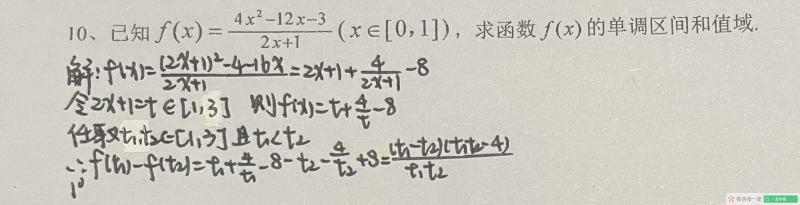 10、已知 f(x)=\frac{4x²-12x-3}{2x+1} (x∈[0,1])，求函数 f(x) 的单调区间和值域.
解:f(x)=\frac{(2x+1)²-4-16x}{2x+1}=2x+1+\frac{4}{2x+1}-8
令2x+1=t∈[1,3] 则f(x)=t+\frac{4}{t}-8
任取t₁,t₂∈[1,3]且t₁<t₂
∴f(t₁)-f(t₂)=t₁+\frac{4}{t₁}-8-t₂-\frac{4}{t₂}+8=\frac{(t₁-t₂)(t₁t₂-4)}{t₁t₂}
1°